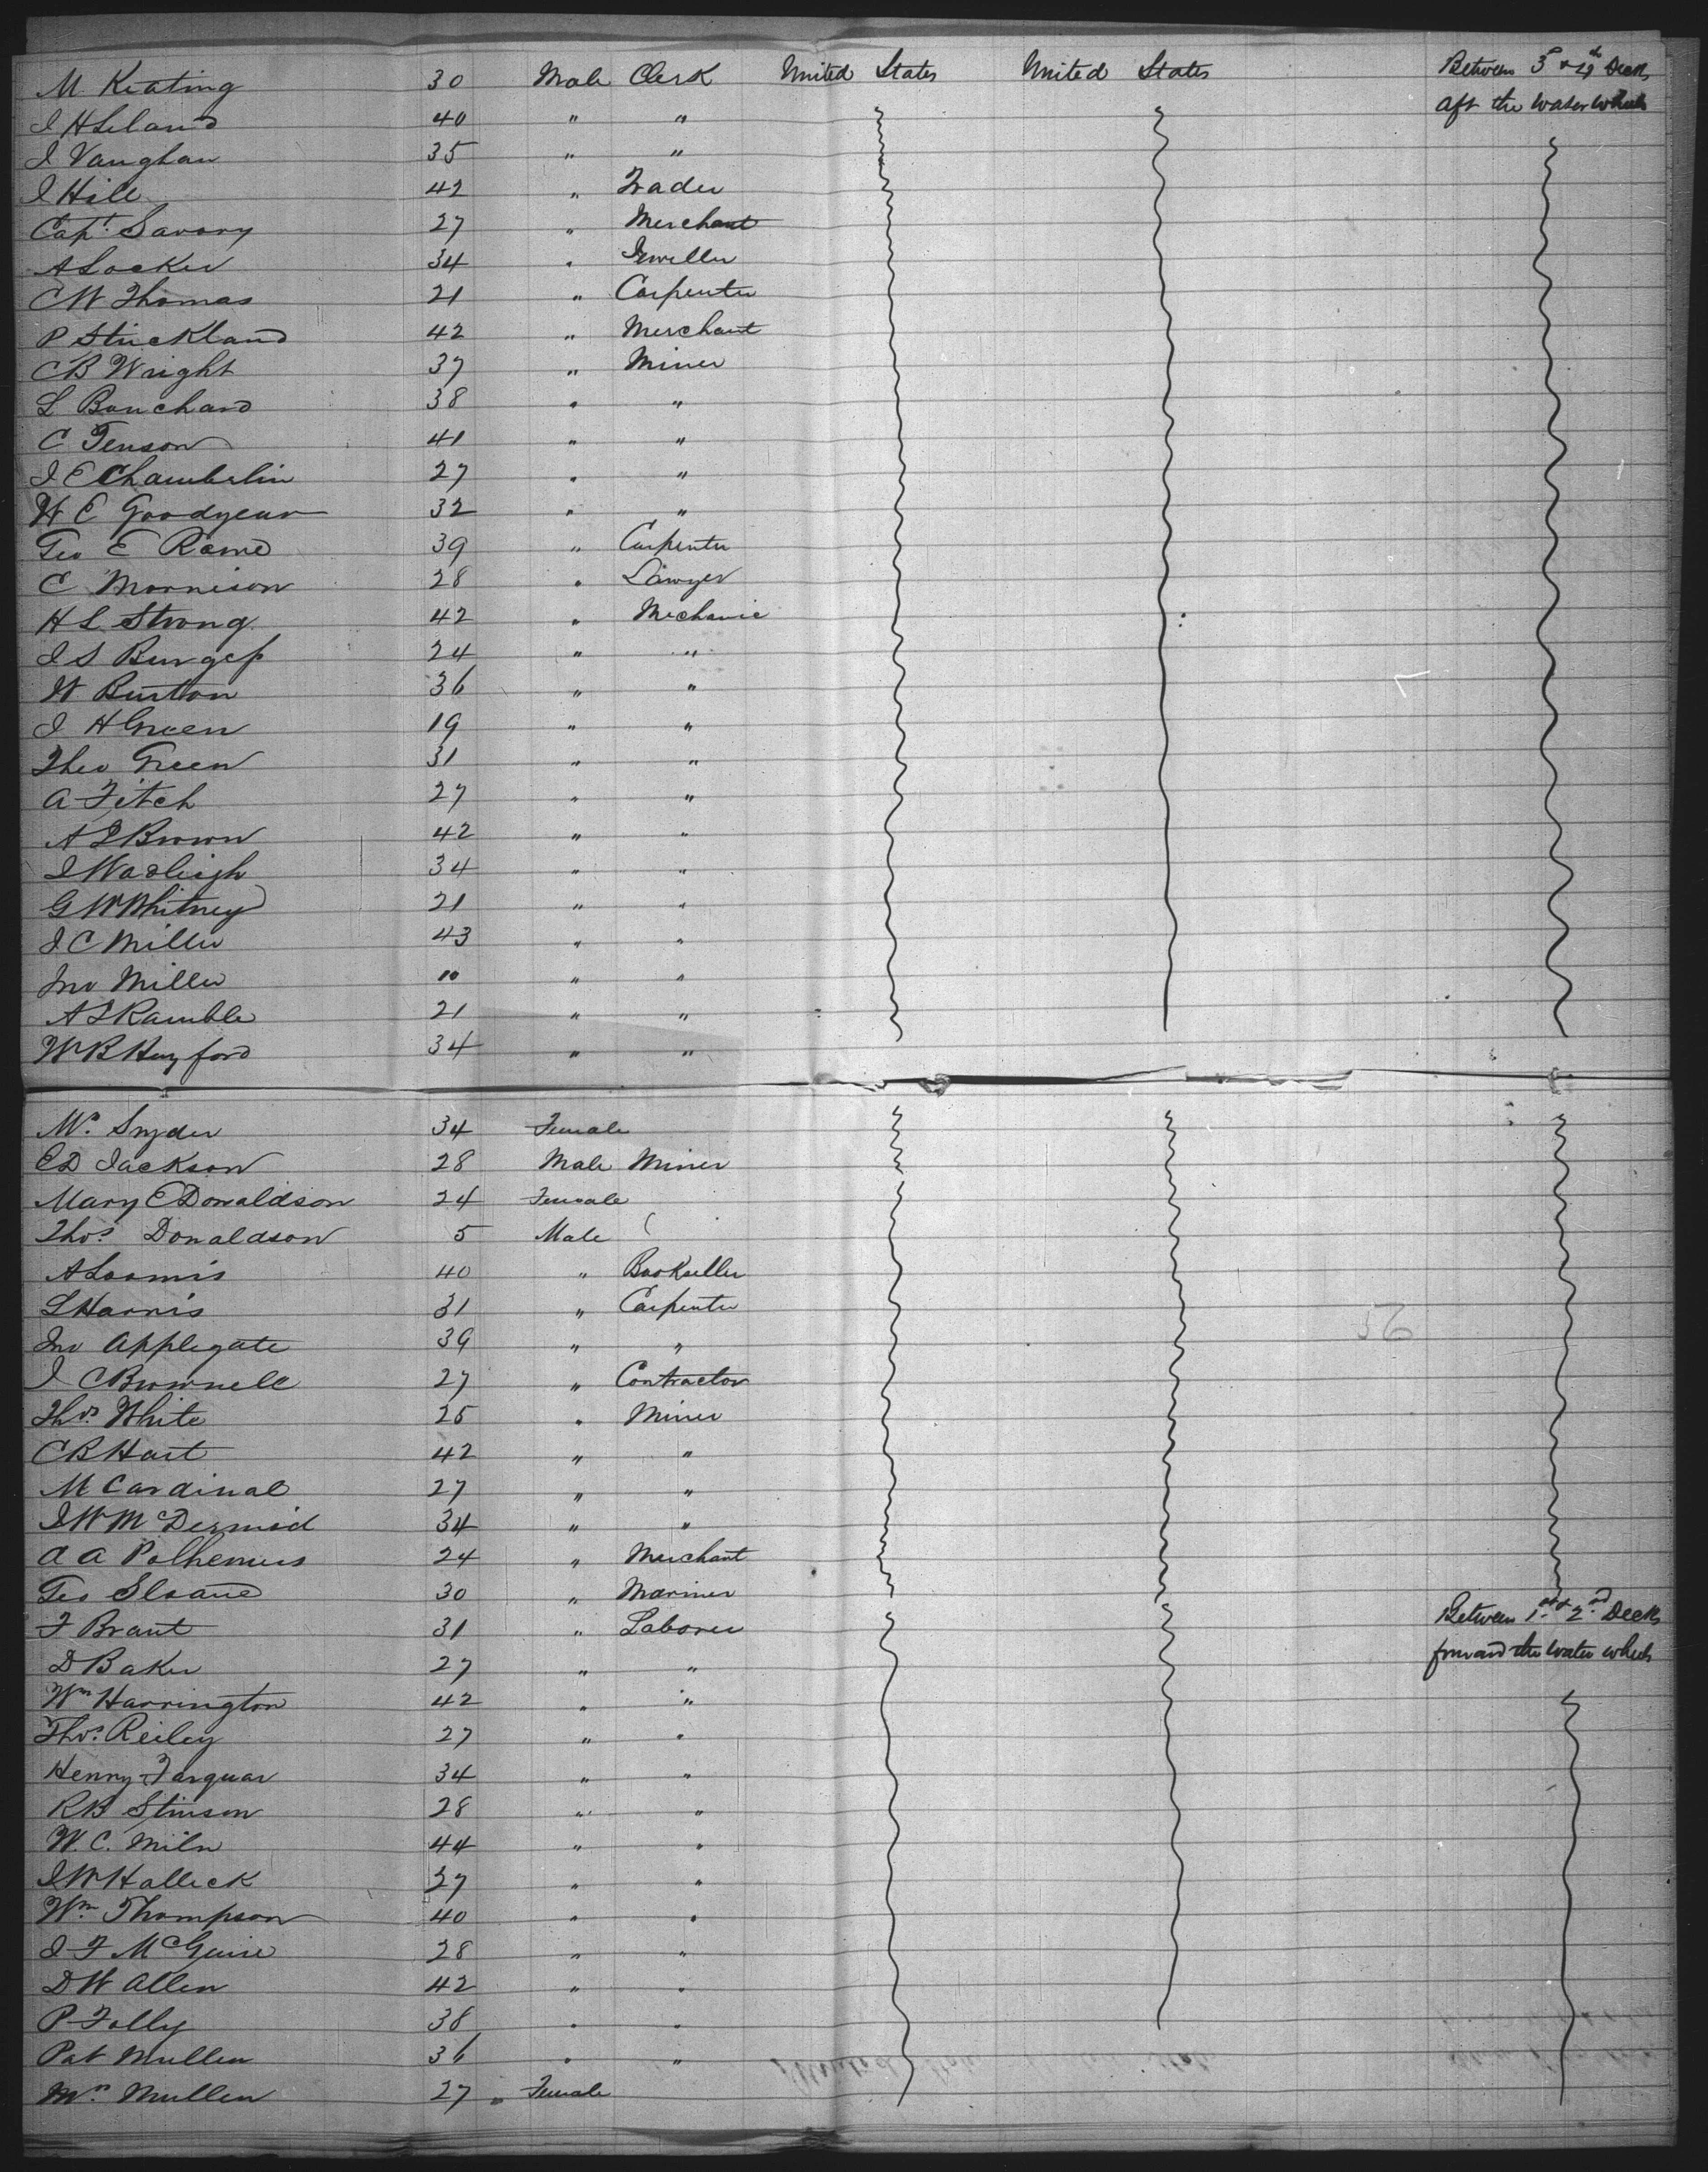 M Keating 30 Male Clerk United States United States Between 3d & 4th Deck
J H Leland 40 " " aft the water wheels
J Vaughan 35 " "
J Hill 42 " Trader
Capt. Savory 27 " Merchant
A Locker 34 " Jeweller
C W Thomas 21 " Carpenter
P Strickland 42 " Merchant
C B Wright 37 " Miner
L Bouchard 38 " "
C Tenson 41 " "
J E Chamberlin 27 " "
W E Goodyear 32 " "
Geo E Rame 39 " Carpenter
C Morrison 28 " Lawyer
H L Strong 42 " Mechanic
J S Burgess 24 " "
W Burton 36 " "
J H Green 19 " "
Theo Green 31 " "
A Fitch 27 " "
A L Brown 42 " "
J Wadleigh 34 " "
G W Whitney 21 " "
J C Miller 43 " "
Jno Miller 10 " "
A L Ramble 21 " "
W B Hayford 34 " "
Mrs. Snyder 34 Female
C D Jackson 28 Male Miner
Mary E Donaldson 24 Female
Thos. Donaldson 5 Male
A Loomis 40 " Bookseller
L Harris 31 " Carpenter
Jno Applegate 39 " "
J C Brownell 27 " Contractor
Thos. White 25 " Miner
C B Hart 42 " "
M Cardinal 27 " "
J W McDermid 34 " "
A A Polhemus 24 " Merchant
Geo Sloane 30 " Mariner
F Brant 31 " Laborer Between 1st & 2nd Deck
D Baker 27 " " forward the water wheels
Wm Harrington 42 " "
Thos. Reiley 27 " "
Henry Farquar 34 " "
R B Stinson 28 " "
W. C. Miln 44 " "
J W Halleck 37 " "
Wm. Thompson 40 " "
J F McGuire 28 " "
D W Allen 42 " "
P Folly 38 " "
Pat Mullen 36 " "
Mrs. Mullen 27 Female